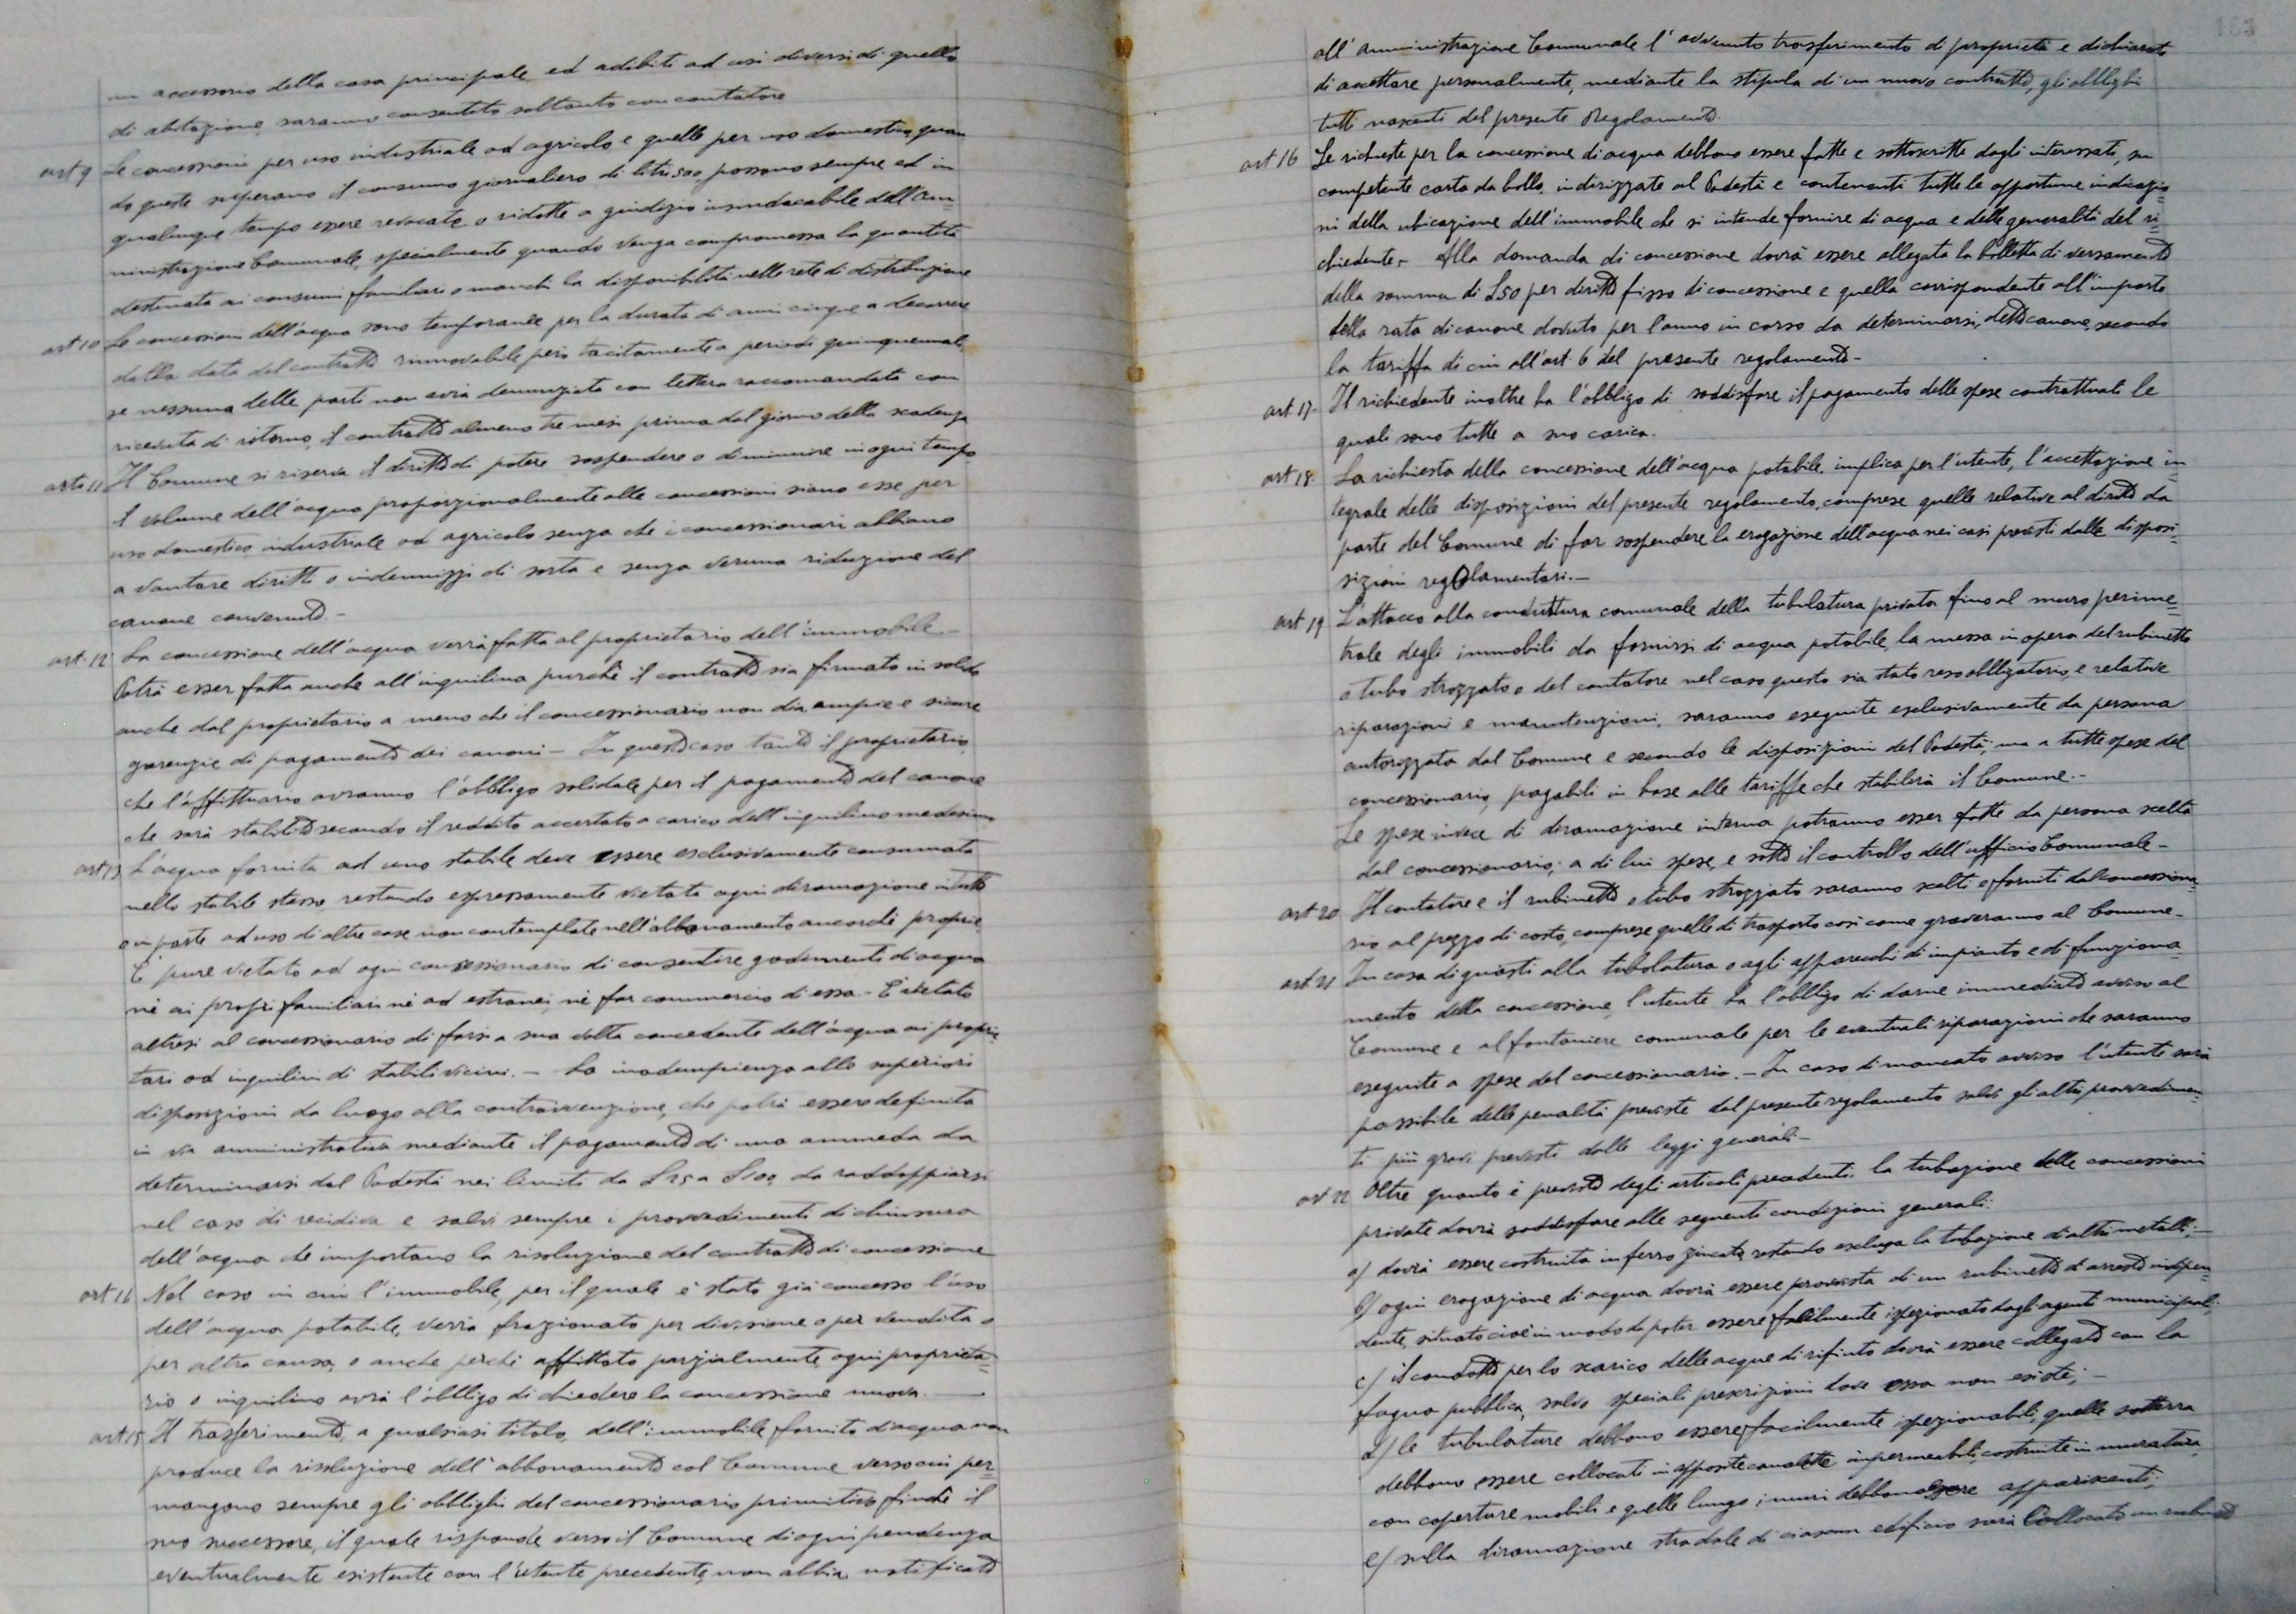 un accessorio della casa principale ed adibiti ad usi diversi di quello
di abitazione, saranno consentite soltanto con contatore
art 9 Le concessioni per uso industriale od agricolo e quelle per uso domestico, quan
do queste superano il consumo giornaliero di litri 500 possono sempre ed in
qualunque tempo essere revocate o ridotte a giudizio insindacabile dell'Am=
ministrazione Comunale, specialmente quando venga compromessa la quantità
destinata ai consumi familiari o manchi la disponibilità nelle rete di distribuzione
art 10 Le concessioni dell'acqua sono temporanee per la durata di anni cinque a decorrere
dalla data del contratto rinnovabile però tacitamente a periodi quinquennali,
se nessuna delle parti non avrà denunziato con lettera raccomandata con
ricevuta di ritorno, il contratto almeno tre mesi prima del giorno della scadenza
arto 11 Il Comune si riserva il diritto di potere sospendere o diminuire in ogni tempo
il volume dell'acqua proporzionalmente alle concessioni siano esse per
uso domestico industriale od agricolo senza che i concessionari abbiano
a vantare diritti o indennizzi di sorta e senza veruna riduzione del
canone convenuto.-
art. 12 La concessione dell'acqua verrà fatta al proprietario dell'immobile-
Potrà esser fatta anche all'inquilino purchè il contratto sia firmato in solido
anche dal proprietario a meno che il concessionario non dia ampie e sicure
garenzie di pagamento dei canoni - In questo caso tanto il proprietario,
che l'affittuario avranno l'obbligo solidale per il pagamento del canone
che sarà stabilito secondo il reddito accertato a carico dell'inquilino medesimo
art 13 L'acqua fornita ad uno stabile deve essere esclusivamente consumata
nello stabile stesso restando espressamente vietata ogni diramazione in tutto
o in parte ad uso di altre case non contemplate nell'abbonamento ancorchè proprie.
E' pure vietato ad ogni concessionario di consentire godimenti di acqua
nè ai propri familiari nè ad estranei, nè far commercio di essa.- E' vietato
altresì al concessionario di farsi a sua volta concedente dell'acqua ai proprie
tari od inquilini di stabili vicini. - La inadempienza alle superiori
disposizioni da luogo alla contravvenzione, che potrà essere definita
in via amministrativa mediante il pagamento di una ammeda da
determinarsi dal Podestà nei limiti da L 25 a L 100, da raddoppiarsi
nel caso di recidiva e salvi sempre i provvedimenti di chiusura
dell'acqua che importano la risoluzione del contratto di concessione
art 16 Nel caso in cui l'immobile, per il quale è stato già concesso l'uso
dell'acqua potabile, verrà frazionato per divisione o per vendita o
per altra causa, o anche perchè affittato parzialmente ogni proprieta=
rio o inquilino avrà l'obbligo di chiedere la concessione nuova. -
art 15 Il trasferimento, a qualsiasi titolo, dell'immobile fornito d'acqua non
produce la risoluzione dell'abbonamento col Comune verso cui per=
mangono sempre gli obblighi del concessionario primitivo finchè il
suo successore, il quale risponde verso il Comune di ogni pendenza
eventualmente esistente con l'utente precedente, non abbia notificato
all'Amministrazione Comunale l'avvenuto trasferimento di proprietà e dichiarato
di accettare personalmente, mediante la stipula di un nuovo contratto, gli obblighi
tutti nascenti del presente Regolamento.
art 16 Le richieste per la concessione di acqua debbono essere fatte e sottoscritte dagli interessati, su
competente carta da bollo, indirizzate al Podestà e contenenti tutte le opportune indicazio
ni della ubicazione dell'immobile che si intende fornire di acqua e delle generalità del ri=
chiedente.- Alla domanda di concessione dovrà essere allegata la bolletta di versamento
della somma di L 50 per diritto fisso di concessione e quella corrispondente all'importo
della rata di canone dovuto per l'anno in corso da determinarsi, detto canone, secondo
la tariffa di cui all'art. 6 del presente regolamento-
art 17- Il richiedente inoltre ha l'obbligo di soddisfare il pagamento delle spese contrattuali le
quali sono tutte a suo carico.
art 18 La richiesta della concessione dell'acqua potabile, implica per l'utente, l'accettazione in=
tegrale delle disposizioni del presente regolamento, comprese quelle relative al diritto da
parte del Comune di far sospendere la erogazione dell'acqua nei casi previsti dalle disposi=
sizioni regolamentari.-
art 19 L'attacco alla conduttura comunale della tubulatura privata fino al muro perime=
trale degli immobili da fornirsi di acqua potabile, la messa in opera del rubinetto
o tubo strozzato o del contatore nel caso questo sia stato reso obbligatorio, e relative
riparazioni e manutenzioni, saranno eseguite esclusivamente da persona
autorizzata dal Comune e secondo le disposizioni del Podestà, ma a tutte spese del
concessionario, pagabili in base alle tariffe che stabilirà il Comune.-
Le spese invece di diramazione interna potranno esser fatte da persona scelta
dal concessionario, a di lui spese, e sotto il controllo dell'ufficio Comunale-
art 20 Il contatore e il rubinetto o tubo strozzato saranno scelti e forniti dal concessiona=
rio al prezzo di costo, comprese quelle di trasporto così come graveranno al Comune-
art 21 In caso di guasti alla tubolatura o agli apparecchi di impianto e di funziona=
mento della concessione, l'utente ha l'obbligo di darne immediato avviso al
Comune e al fontaniere comunale per le eventuali riparazioni che saranno
eseguite a spese del concessionario.- In caso di mancato avviso l'utente sarà
passibile delle penalità previste dal presente regolamento salvi gli altri provvedimen=
ti più gravi previsti dalle leggi generali-
art 22 Oltre quanto è previsto degli articoli precedenti. la tubazione delle concessioni
private dovrà soddisfare alle seguenti condizioni generali:
a/ dovrà essere costruita in ferro zincato, restando esclusa la tubazione d'altri metalli;-
b/ ogni erogazione di acqua dovrà essere provvista di un rubinetto d'arresto indipen=
dente, situato cioè in modo da poter essere facilmente ispezionato dagli agenti municipali;
c/ il condotto per lo scarico delle acque di rifiuto dovrà essere collegato con la
fogna pubblica, salvo speciali prescrizioni dove essa non esiste;-
d/ le tubulature debbono essere facilmente ispezionabili, quelle sotterra
debbono essere collocati in apposite canalette impermeabili, costruite in muratura
con coperture mobili e quelle lungo i muri debbono essere appariscenti;
e/ sulla diramazione stradale di ciascun edificio sarà collocato un rubinetto